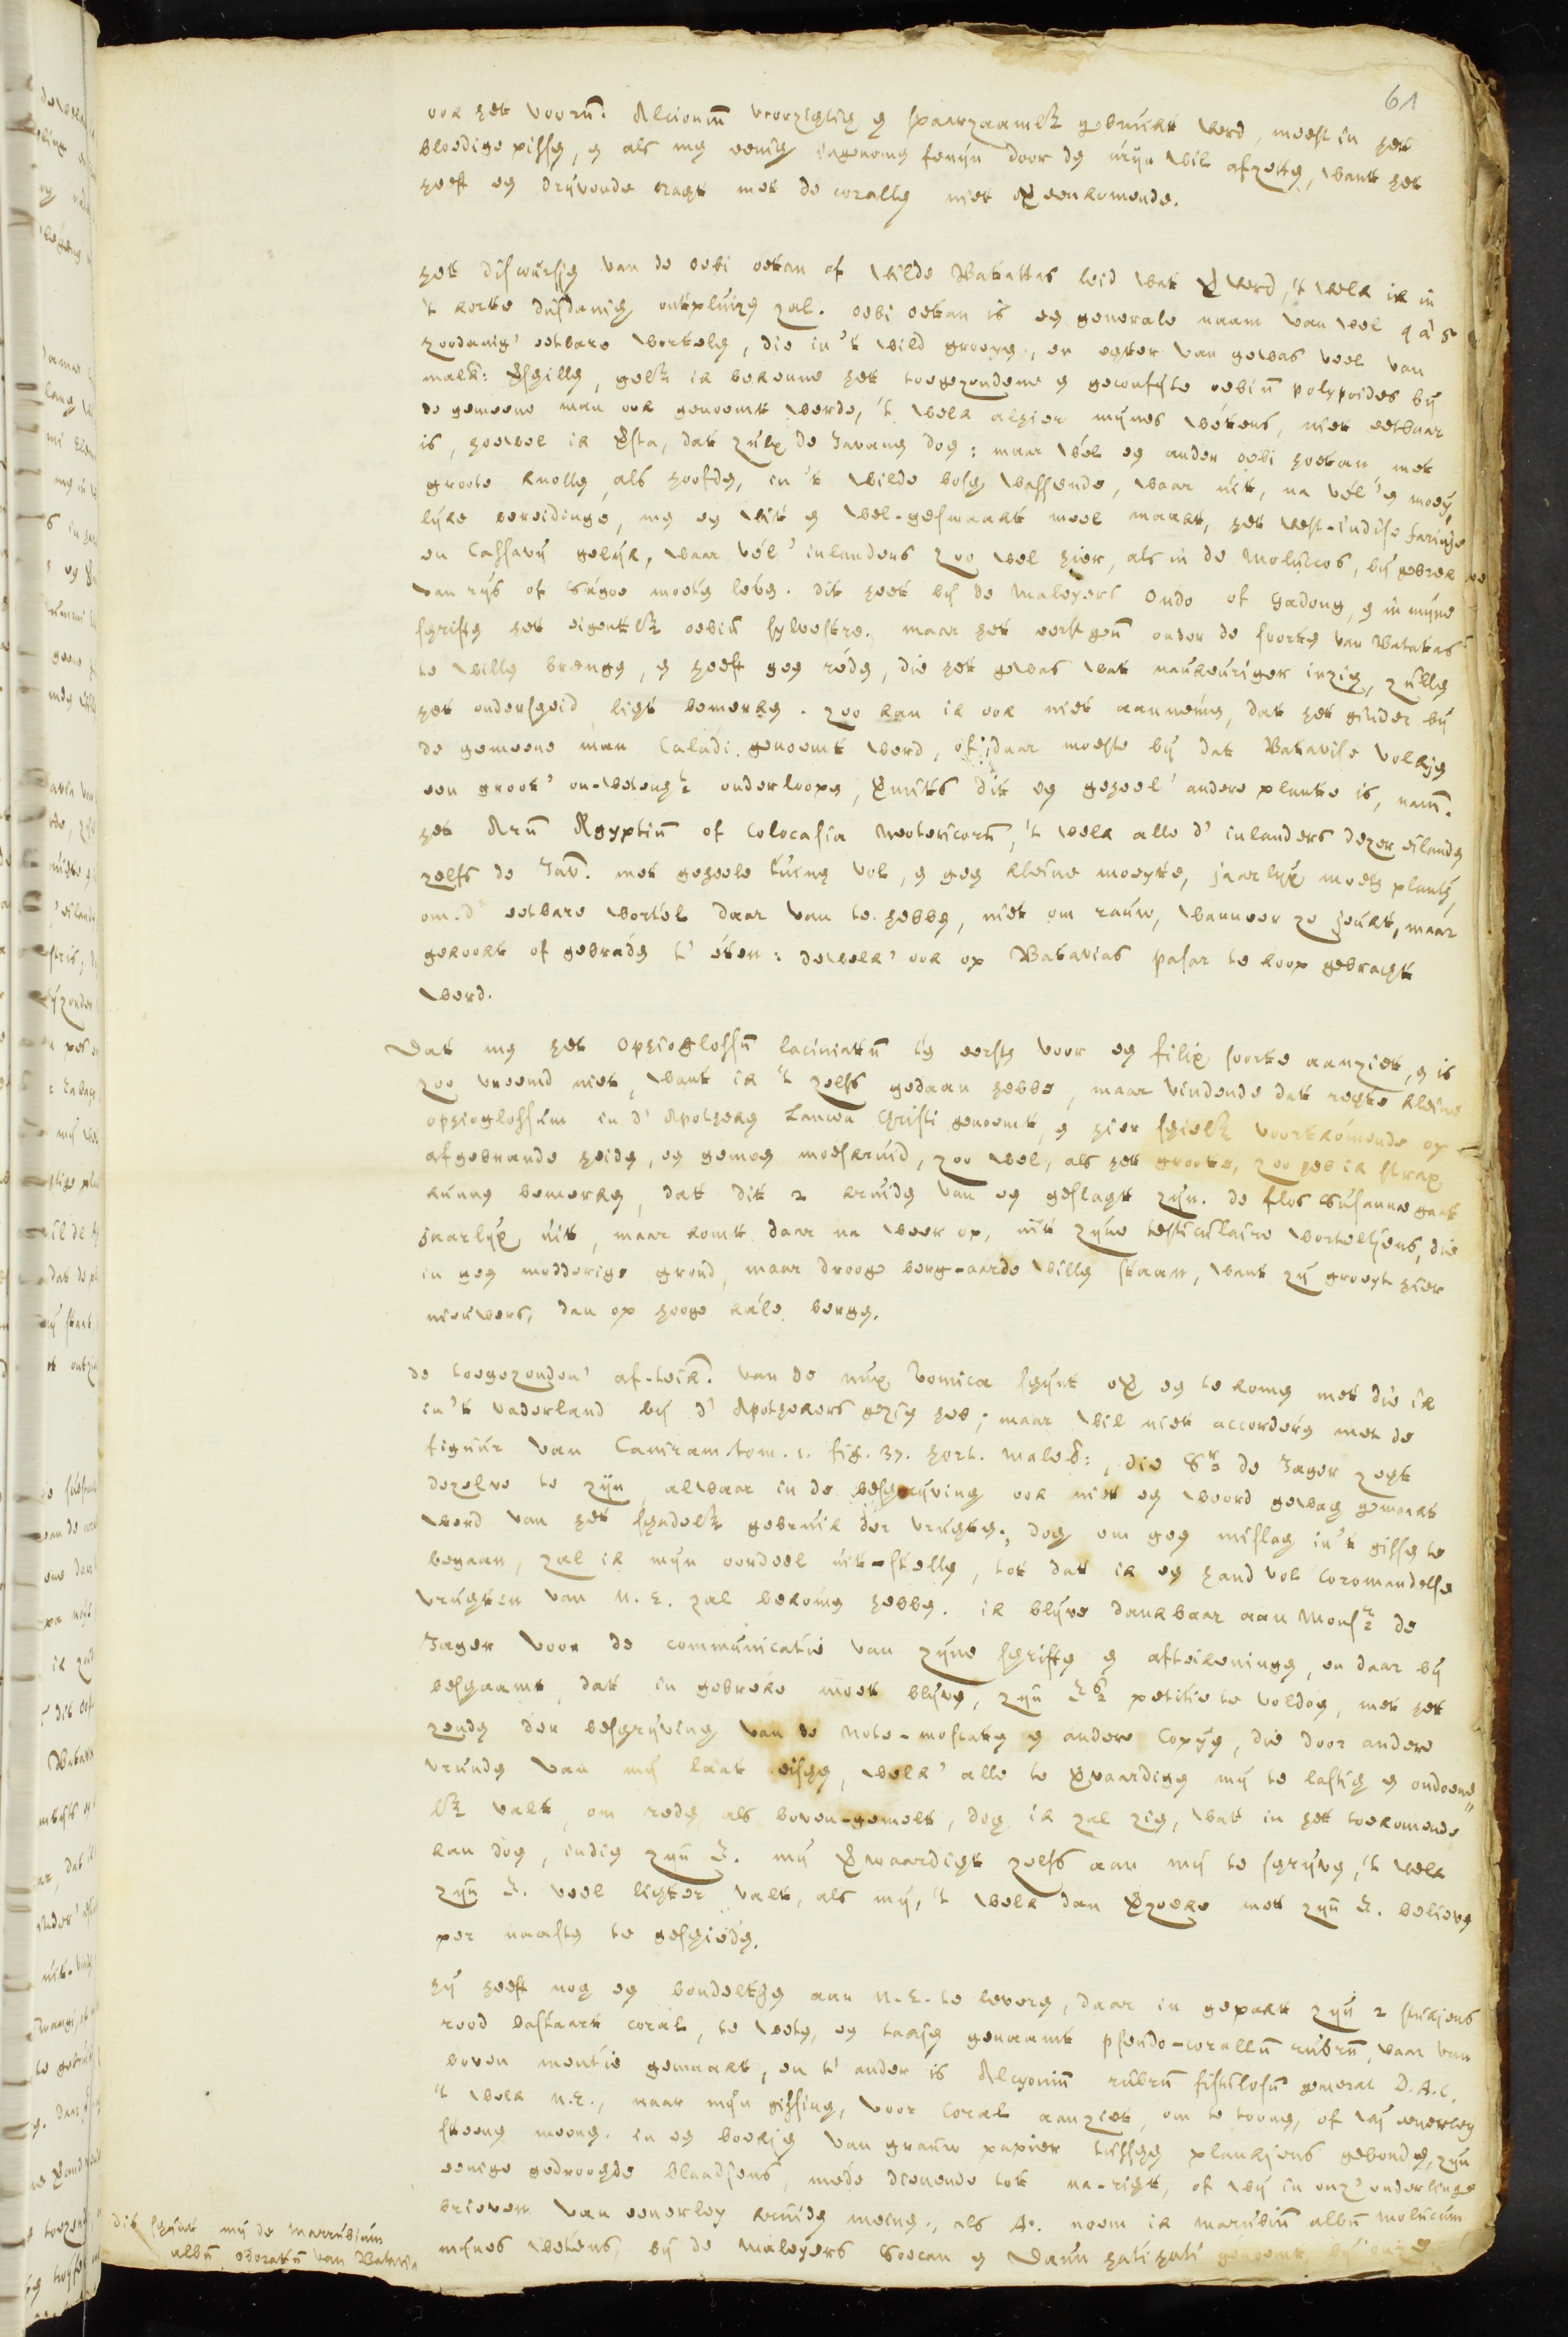 61
ook het voorn. Alcionium voorzigtig en spaarzaamlk gebruikt werd, meest in het
bloedige pissen, en als men eenig ingenomen fenyn door de uryn wil afzetten, want het
heeft een dryvende cragt met de corallen niet overeenkomende.
het discourssen van de oebi oetan of wilde Batattas leid wat verwerd, 't welk ik in
't korte dusdanig ontpluizen zal. oebi oetan is een generale naam van wel 4 à 5
zoodanig' eetbare wortelen, die in 't wild groeyen, en egter van gewas veel van
malk: verschillen, gelk ik bekenne het toegezondene en geconfyte oebium polypoides by
de gemeene man ook genoemt werde, 't welk alhier mynes wetens, niet eetbaar
is, hoewel ik versta, dat zulx de Javanen doen: maar wel een ander oebi hoetan met
groote knollen, als hoofden, in 't wilde bosch wassende, waar uit, na vél' en moey,
lyke bereidinge, men een wit en wel-gesmaakt meel maakt, het west-indise farinje
en Cassavy gelyk, waar vél' inlanders zoo wel hier, als in de Moluccos, by gebrek
van rys of Sagoe moeten leven. dit heet by de Maleyers Ondo of Gadong, en in myne
schriften het eigentlk oebium sylvestre. maar het eerst gen. onder de soorten van Batatas
te willen brengen, en heeft geen réden, die het gewas wat naukeuriger inzien, zullen
het onderscheid ligt bemerken. zoo kan ik ook niet aannemen, dat het ginder by
de gemeene man Caladi genoemt werd, of daar moeste by dat Batavise volkjen
een groot' on-wetenh. onderloopen, vermits dit een geheel' andere plante is, nam.
het Arum Ægyptium of Colocasia Neotericorum, 't welk alle d' inlanders dezer eilanden
zelfs de Jav. met geheele tuinen vol, en geen kleine moeyte, jaarlyx moeten planten,
om d' eetbare wortel daar van te hebben, niet om rauw, wanneer ze jeukt, maar
gekookt of gebraden t' eten: dewelk' ook op Batavias pasar te koop gebracht
werd.
Dat men het Ophioglossum laciniatum ten eersten voor een filix soorte aanziet, en is
zoo vreemd niet, want ik 't zelfs gedaan hebbe, maar vindende dat regte kleine
ophioglossum in d' Apotheken Lancea Christi genoemt, en hier schielk voortkomende op
afgebrande heiden, een gemeen moeskruid, zoo wel, als het groote, zoo heb ik strax
kunnen bemerken, dat dit 2 kruiden van een geslagt zyn. de flos Susannæ gaat
jaarlyx uit, maar komt daar na weer op, uit zyne testiculaire worteltjens, die
in geen modderige grond, maar drooge berg-aarde willen staan, want zy groeyt hier
nieuwers, dan op hooge kale bergen.
de toegezonden' af-teik. van de nux vomica schynt over een te komen met die ik
in 't vaderland by d' Apothekers gezien heb; maar wil niet accorderen met de
figuur van Caniram. tom. 1. fig. 37. hort. malab:, die Sr. de Jager zegt
dezelve te zyn, alwaar in de beschryving ook niet een woord gewag gemaakt
werd van het schadelk gebruik der vrugten; dog om geen mislag in 't gissen te
begaan, zal ik myn oordeel uit-stellen, tot dat ik een hand vol Coromandelse
vrugten van U.E. zal bekomen hebben. ik blyve dankbaar aan Monsr. de
Jager voor de communicatie van zyne schriften en afteikeningen, en daar by
beschaamt, dat in gebreke moet blyven, zyn E. petitie te voldoen, met het
zenden der beschryving van de Note-moscaten en andere Copyen, die door andere
vrunden van my laat eischen, welk' alle te vervaardigen my te lastig en ondoene"
lk valt, om reden als boven-gemelt, dog ik zal zien, wat in het toekomende
kan doen, indien zyn E. my verwaardigt zelfs aan my te schryven, 't welk
zyn E. veel ligter valt, als my, 't welk dan verzoeke met zyn E. believen
per naasten te geschieden.
hy heeft nog een bondeltjen aan U.E. te leveren, daar in gepakt zyn 2 stukjens
rood bastaart coral, te weten, een takjen genaamt pseudo-corallum rubrum, waar van
boven mentie gemaakt, en t' ander is Alcyonium rubrum fistulosum gemerct D.A.C.
't welk U.E., naar myn gissing, voor Coral aanziet, om te toonen, of wy eenerley
steenen meenen. in een boekjen van grauw papier tusschen plankjens gebonden, zyn
eenige gedroogde blaadjens, mede dienende tot na-rigt, of wy in onz' onderlinge
brieven van eenerley kruiden meinen, als A. noem ik marubium album molucum
mynes wetens, by de Maleyers Soecan en Daun hati hati genoemt, by onze
dit schynt my de marrubium
album odoratum van Batavia